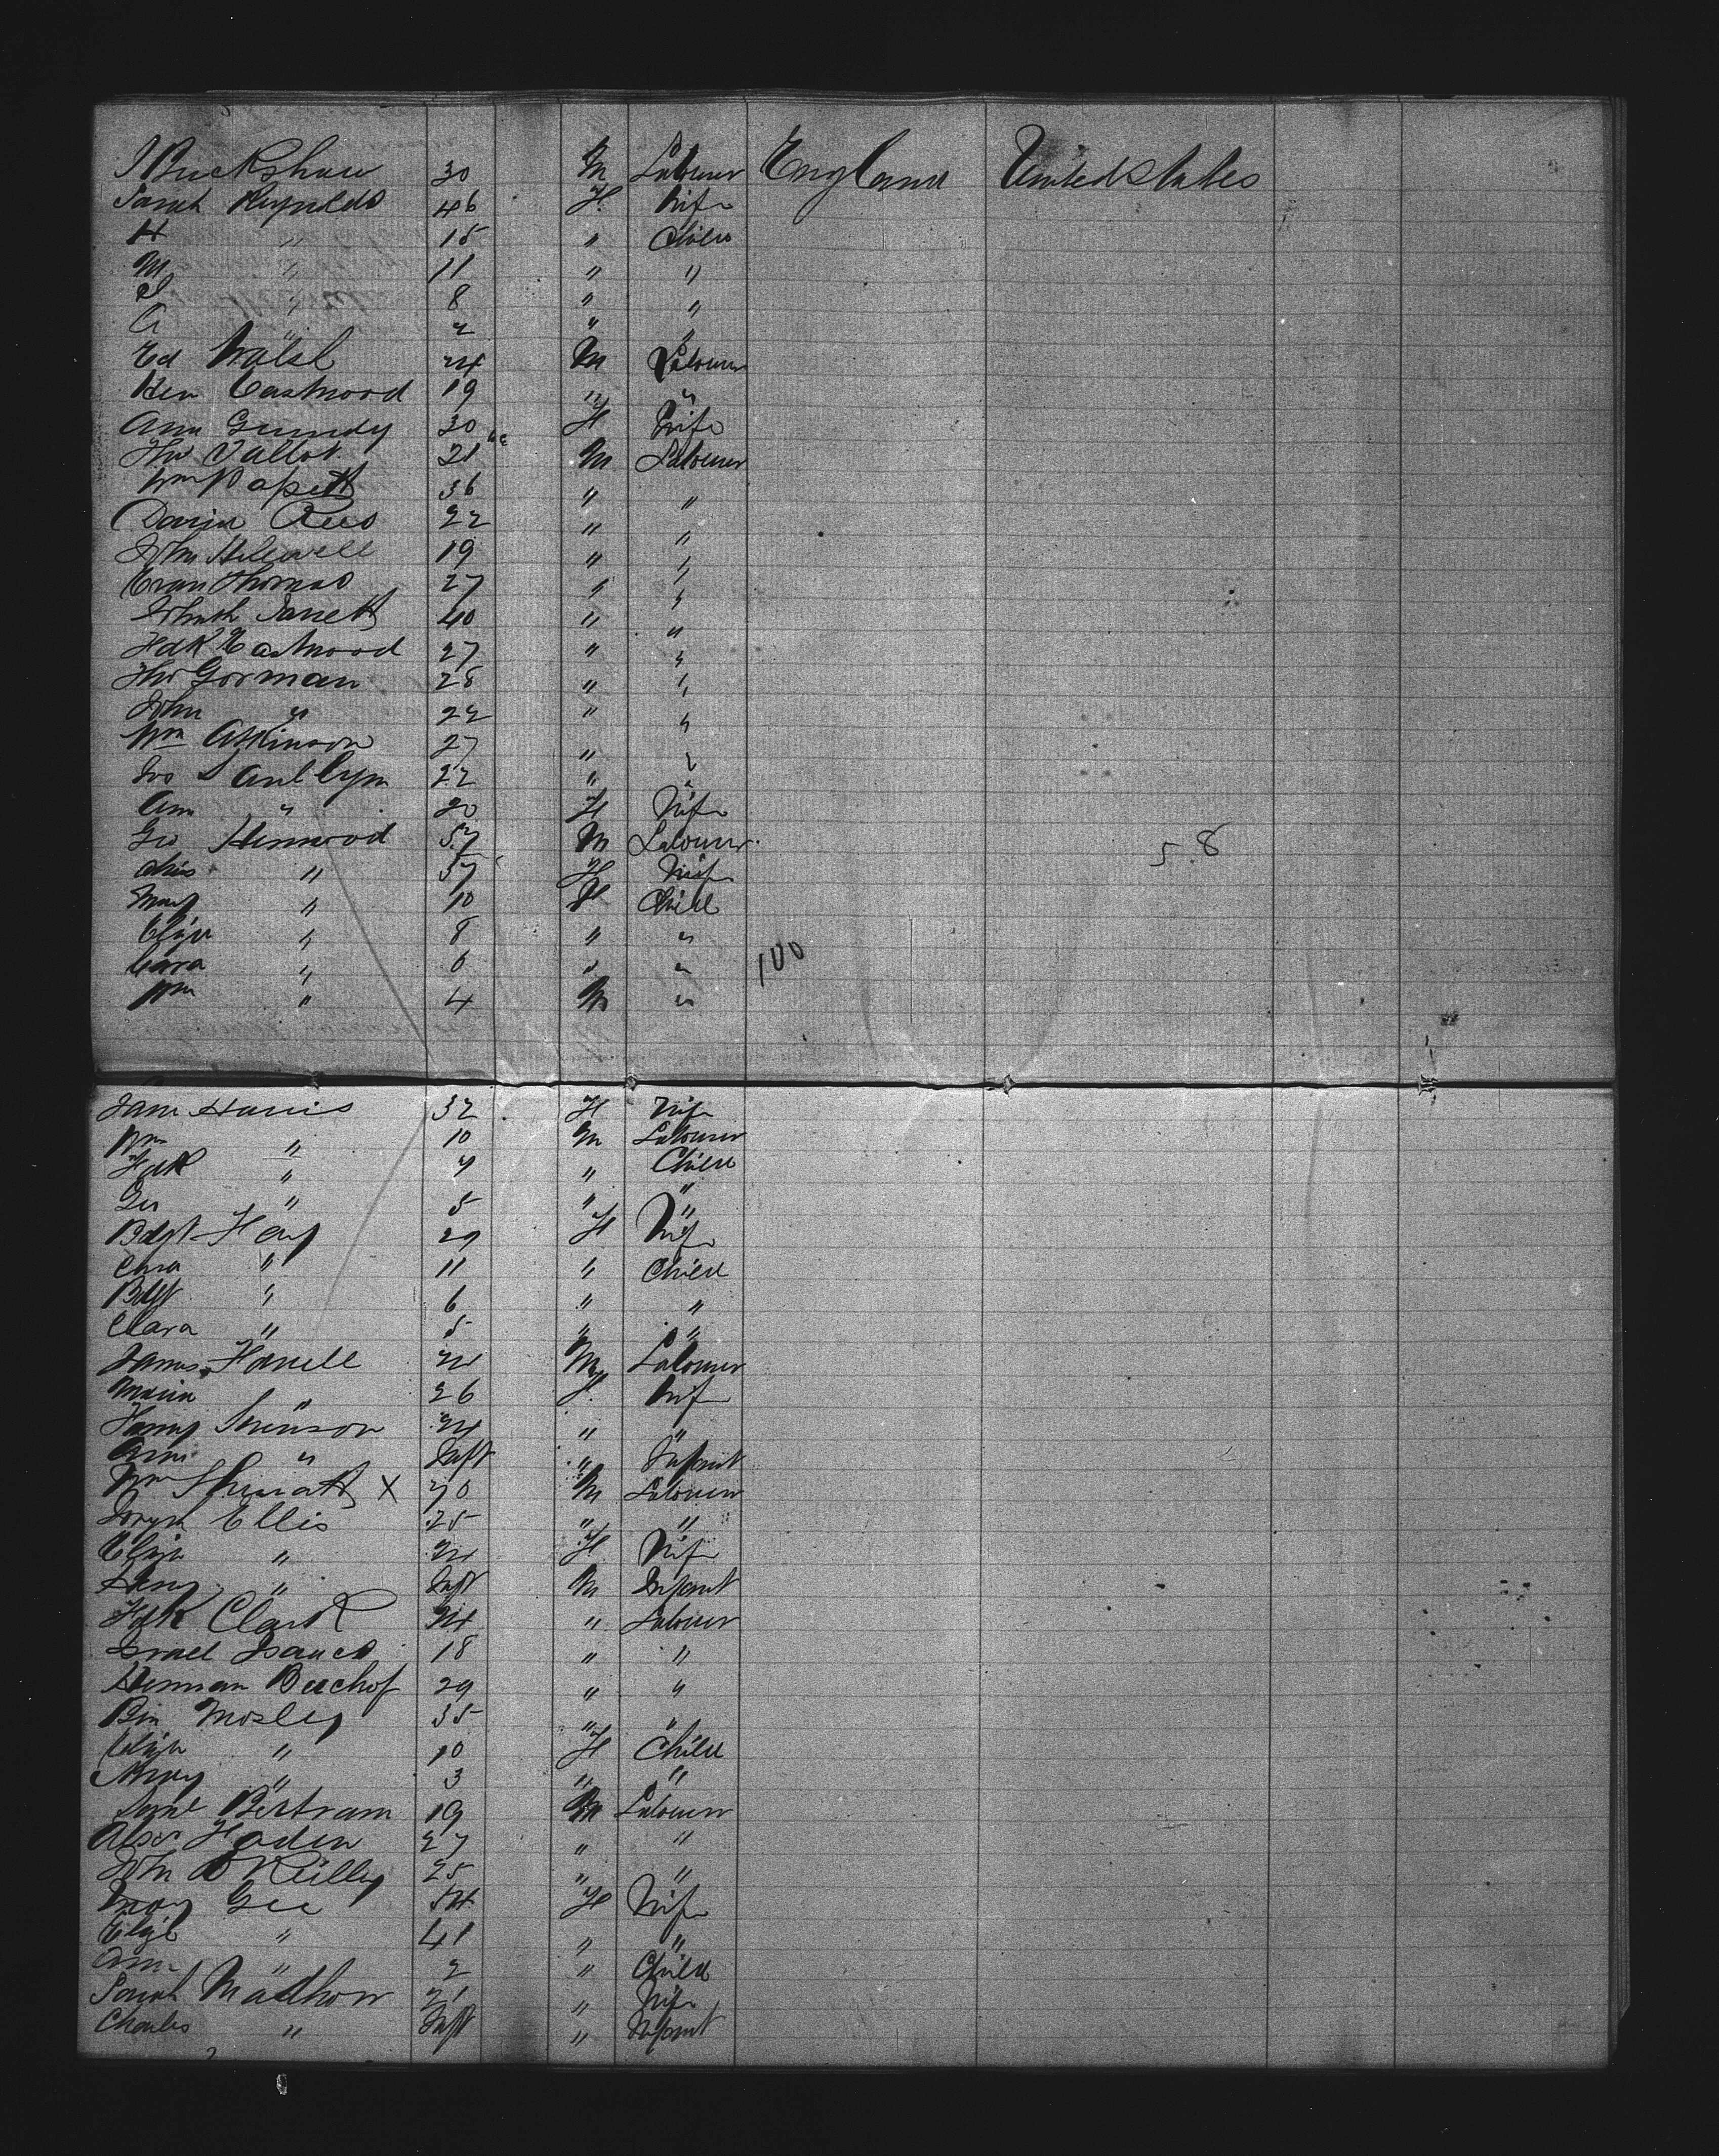 J Buckshaw 30 M Labourer England United States
Sarah Reynolds 46 F Wife
H " 15 " Child
M " 11 " "
S " 8 " "
A " 2 " "
Ed Walsh 24 M Labourer
Hen Eastwood 19 " "
Ann Grundy 30 F Wife
Tho Tallot 21 M Labourer
Wm 36 " "
David Rees 22 " "
John 19 " "
Evan Thomas 27 " "
Jarrett 40 " "
Fdk Eastwood 27 " "
Tho Gorman 28 " "
John " 22 " "
Wm Atkinson 27 " "
Jno 22 " "
Ann " 20 F Wife
Geo Henwood 57 M Labourer
" 57 F Wife 58
Mary " 10 F Child
Eliza " 8 " "
Cara " 6 " " 100
Wm " 4 M "
Jane Harris 32 F Wife
Wm " 10 M Labourer
Fdk " 7 " Child
Geo " 5 " "
Bdgt Hay 29 F Wife
" 11 " Child
Bdgt " 6 " "
Clara " 5 " "
James 24 M Labourer
Maria " 26 F Wife
24 " "
Ann " Inft " Infant
Wm X M Labourer
Joseph Ellis 25 " "
Eliza " 24 F Wife
Henry " Inft M Infant
Fdk Clark 24 " Labourer
Israel Isaacs 18 " "
Herman Bischof 29 " "
Ben Mosley 35 " "
" 10 F Child
Mary " 3 " "
Saml Bertram 19 M Labourer
Alex Haden 27 " "
John O Reilly 25 " "
Mary Gee 54 F Wife
" 41 " "
Ann " 2 " Child
Sarah 21 " Wife
Charles " Inft " Infant